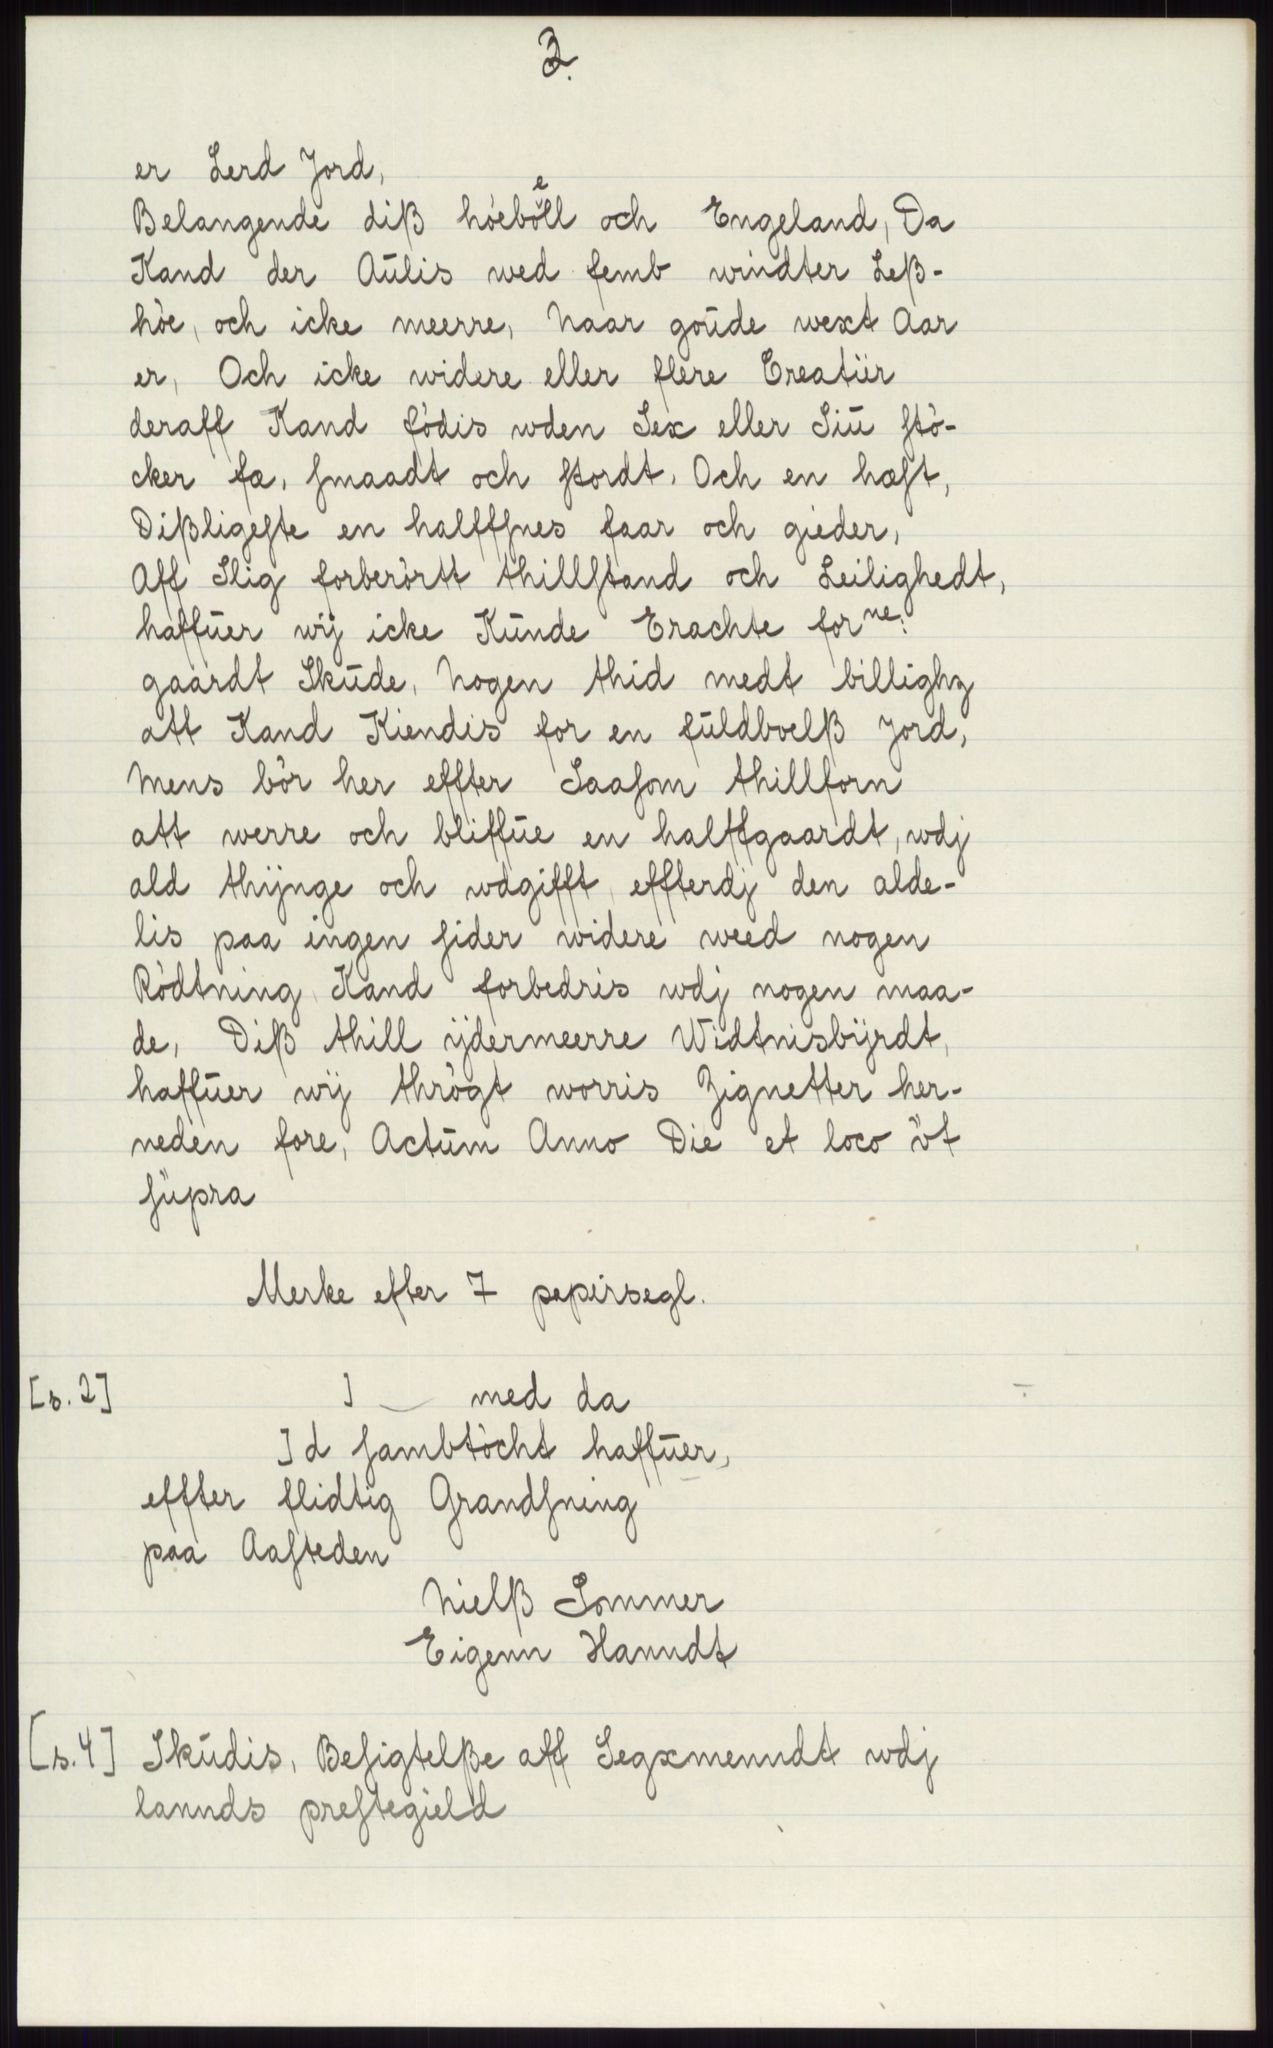 3.
er Lerd Jord,
Belangende diß höeböell och Engeland, Da
Kand der Aūlis wed femb windter Leß-
höe, och icke meerre, Naar goūde wext Aar
er, Och icke widere eller flere Creatūr
deraff Kand födis wden Sex eller Siū stö-
cker fæ, smaadt och stordt. Och en hæst,
Dißligeste en halffsnes faar och gieder,
Aff Slig forberörtt thillstand och Leilighedt,
haffūer wij icke Kūnde Erachte for ne:
gaardt Skūde, Nogen thid medt billighz
att Kand Kiendis for en fūldboelß Jord,
Mens bör her effter Saasom thillforn
att werre och bliffūe en halffgaardt, wdj
ald thÿnge och wdgifft, effterdj den alde-
lis paa ingen sider widere weed nogen
Rödtning Kand forbedris wdj nogen maa-
de, Diß thill ÿdermeerre Widtnisbÿrdt,
haffūer wij thrögt worris Zignetter her-
neden fore, Actūm Anno Die et loco ūt
sūpra
Merke efter 7 papirsegl.
[s. 2] ] med da
]d sambtöcht haffūer,
effter flidtig Grandsning
paa Aasteden
Nielß Sommer
Eigenn Hanndt
[s. 4] Skūdis, Besigtelße aff Segxmenndt wdj
lannds prestegield